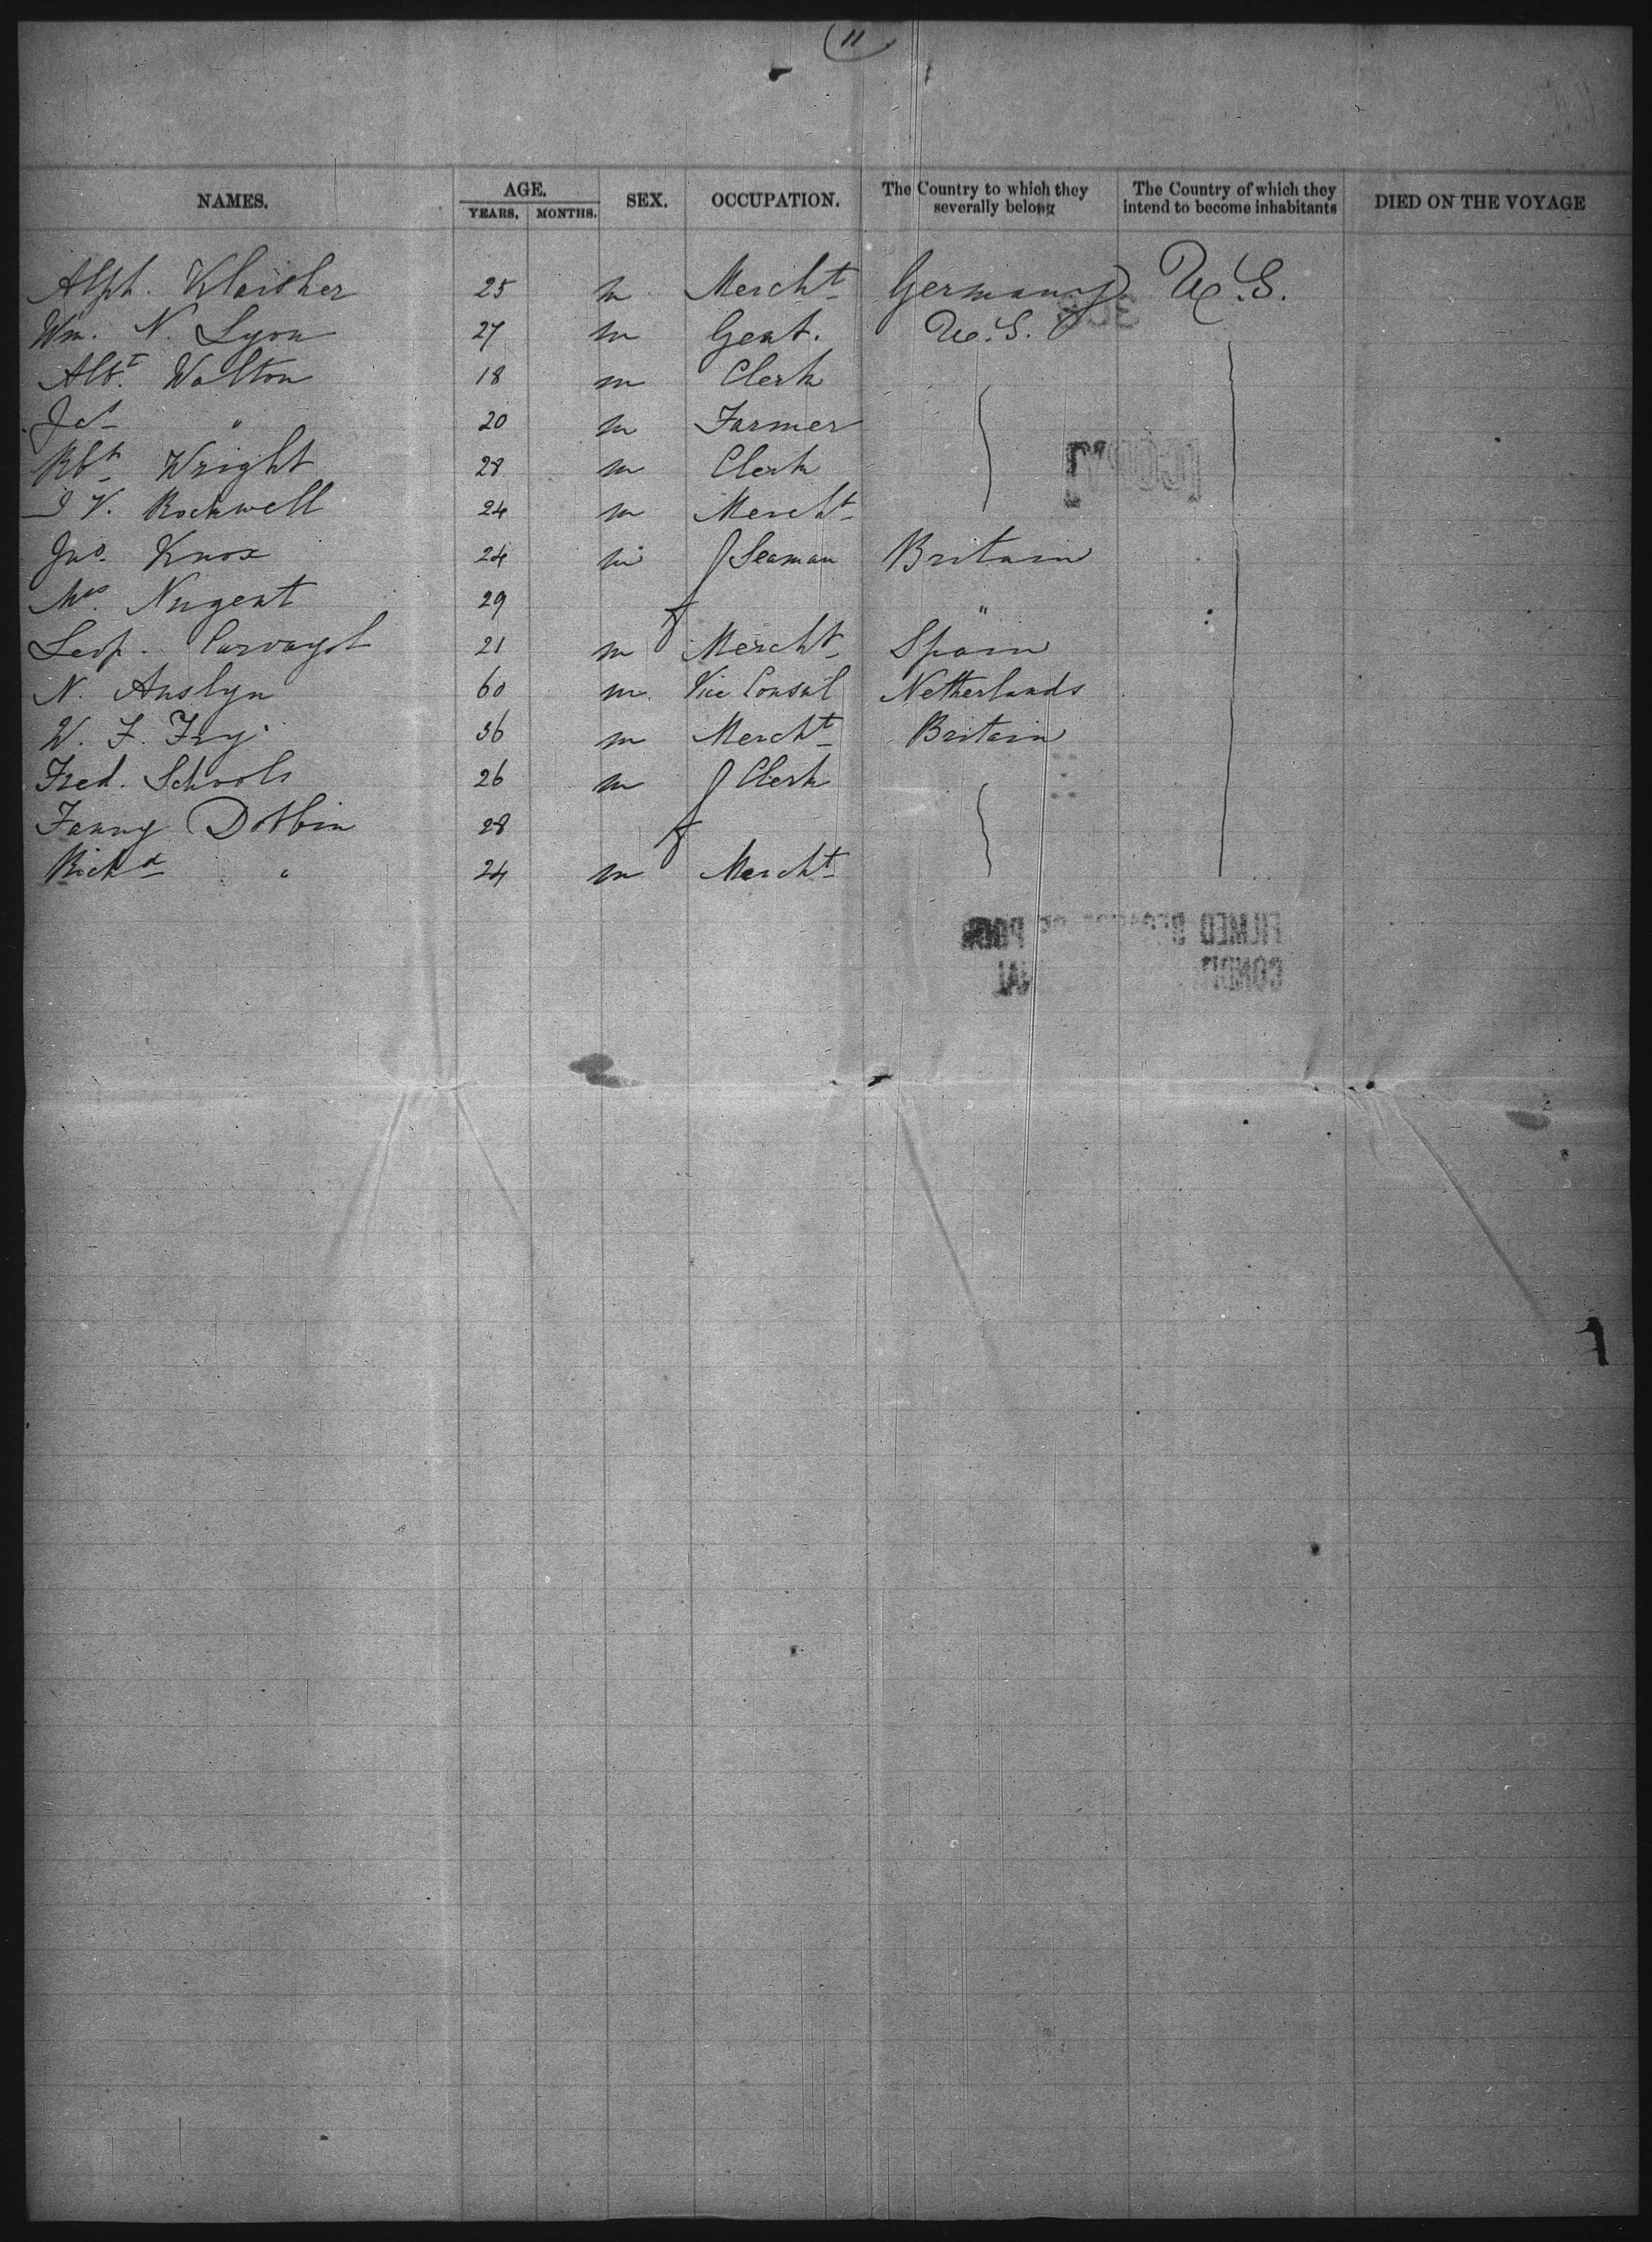 11
NAMES. AGE. YEARS. MONTHS. SEX. OCCUPATION. The Country to which they severally belong The Country of which they intend to become inhabitants DIED ON THE VOYAGE
Alph. Klaisher 25 m Mercht Germany U.S.
Wm. N. Lyon 27 m Gent. U.S.
Albt. Walton 18 m Clerk
Jas " 20 m Farmer
Rbt Wright 28 m Clerk
J V. Rockwell 24 m Mercht
Jno. Knox 24 m Seaman Britain
Mrs. Nugent 29 f "
Leop. 21 m Mercht Spain
N. Anslyn 60 m. Vice Consul Netherlands
W. F. Fry 36 m Mercht Britain
Fred. Schools 26 m Clerk
Fanny Dobbin 28 f
Richd " 24 m Mercht
FILMED